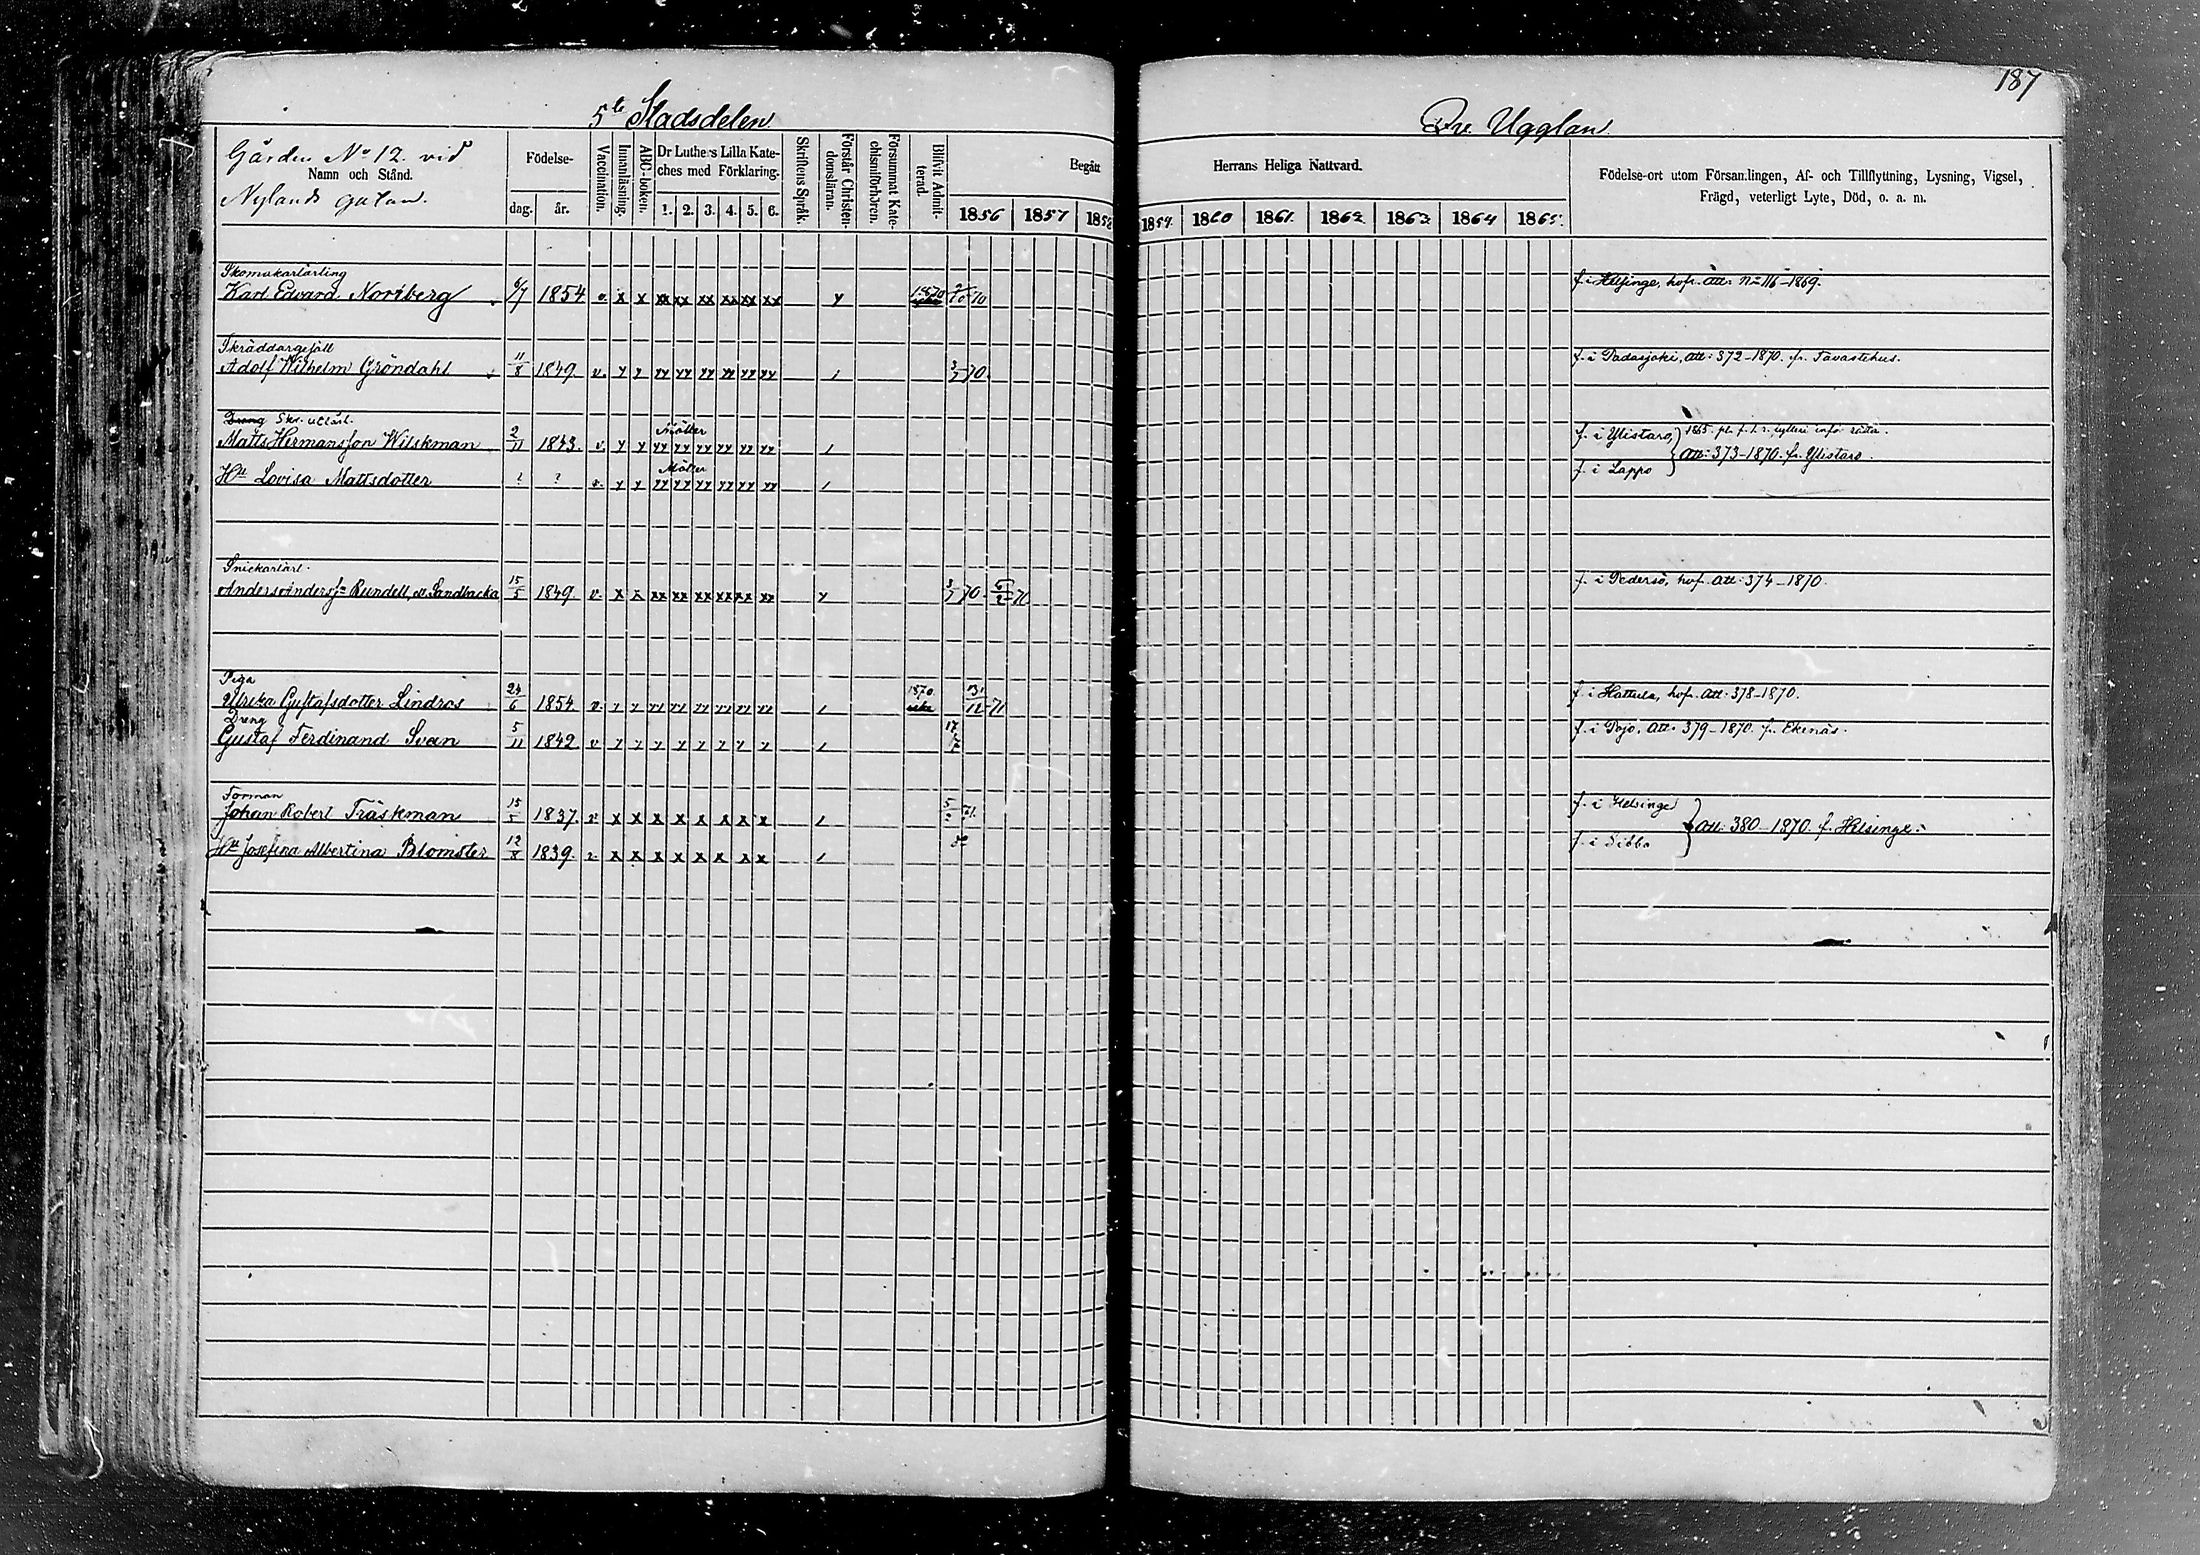 187
5te Stadsdelen
Qvr. Ugglan
Gården No 12. vid
Namn och Stånd.
Nylands gatan.
Födelse-
dag. år.
Vaccination.
Innanläsning.
ABC-boken.
Dr Luthers Lilla Kate-
ches med Förklaring.
1. 2. 3. 4. 5. 6.
Skriftens Språk.
Förstår Christen-
domsläran.
Försummat Kate-
chismiförhören.
Blifvit Admit-
terad.
Begått Herrans Heliga Nattvard.
1856 1857 1858 1859. 1860 1861. 1862. 1863 1864 1865.
Födelse-ort utom Församlingen, Af- och Tillflyttning, Lysning, Vigsel,
Frägd, veterligt Lyte, Död, o. a. m.
Skomakarlärling
Karl Edvard Noriberg 6/7 1854 v. x x xx xx xx xx xx xx y 1870 2/10 70 f. i Helsinge, hofr. att: No 116-1869.
Skräddaregesäll
Adolf Wilhelm Gröndahl 11/8 1849. v. y y yy yy yy yy yy yy / 3/7 70 f. i Padasjoki, att: 372-1870. fr. Tavastehus.
Dräng Skr. utlärl.
Matts Hermansson Wilskman 2/11 1843. v. y y yy yy yy yy yy yy / f. i Ylistaro, 1865
att: 373-1870. fr. Ylistaro.
Hu Lovisa Mattsdotter ? ? v. y y yy yy yy yy yy yy / f. i Lappo
Snickarlärl.
Anders Andersson Rundell, el. Sandbacka 15/5 1849. v. x x xx xx xx xx xx xx y 3/7 70 5/2 71 f. i Pedersö, hof. att: 374-1870.
Piga
Ulrika Gustafsdotter Lindros 24/6 1854 v. y y yy yy yy yy yy yy / 1870. 31/12 71 f. i Hattula, hofr. att: 378-1870.
Dräng
Gustaf Ferdinand Svan 5/11 1842 v y y y y y y y y / f. i Pojo, att: 379-1870. f. Ekenäs.
Forman
Johan Robert Träskman 15/5 1837. v. x x x x x x x x / 5/2 71. f. i Helsinge
att: 380-1870. f. Helsinge.
Hu Josefina Albertina Blomster 12/8 1839. v. x x x x x x x x / f. i Sibbo